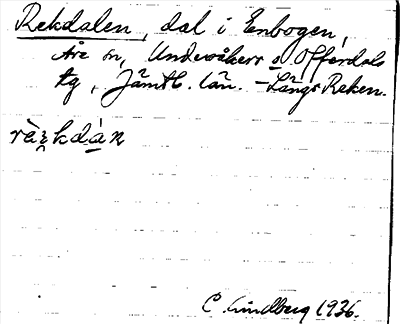 Rekdalen, dal i Enbogen,
Åre sn, Undersåkers o. Offerdals
tg, Jämtl. län. – Längs Reken.
ràʒkdán
C. Lindberg 1936.